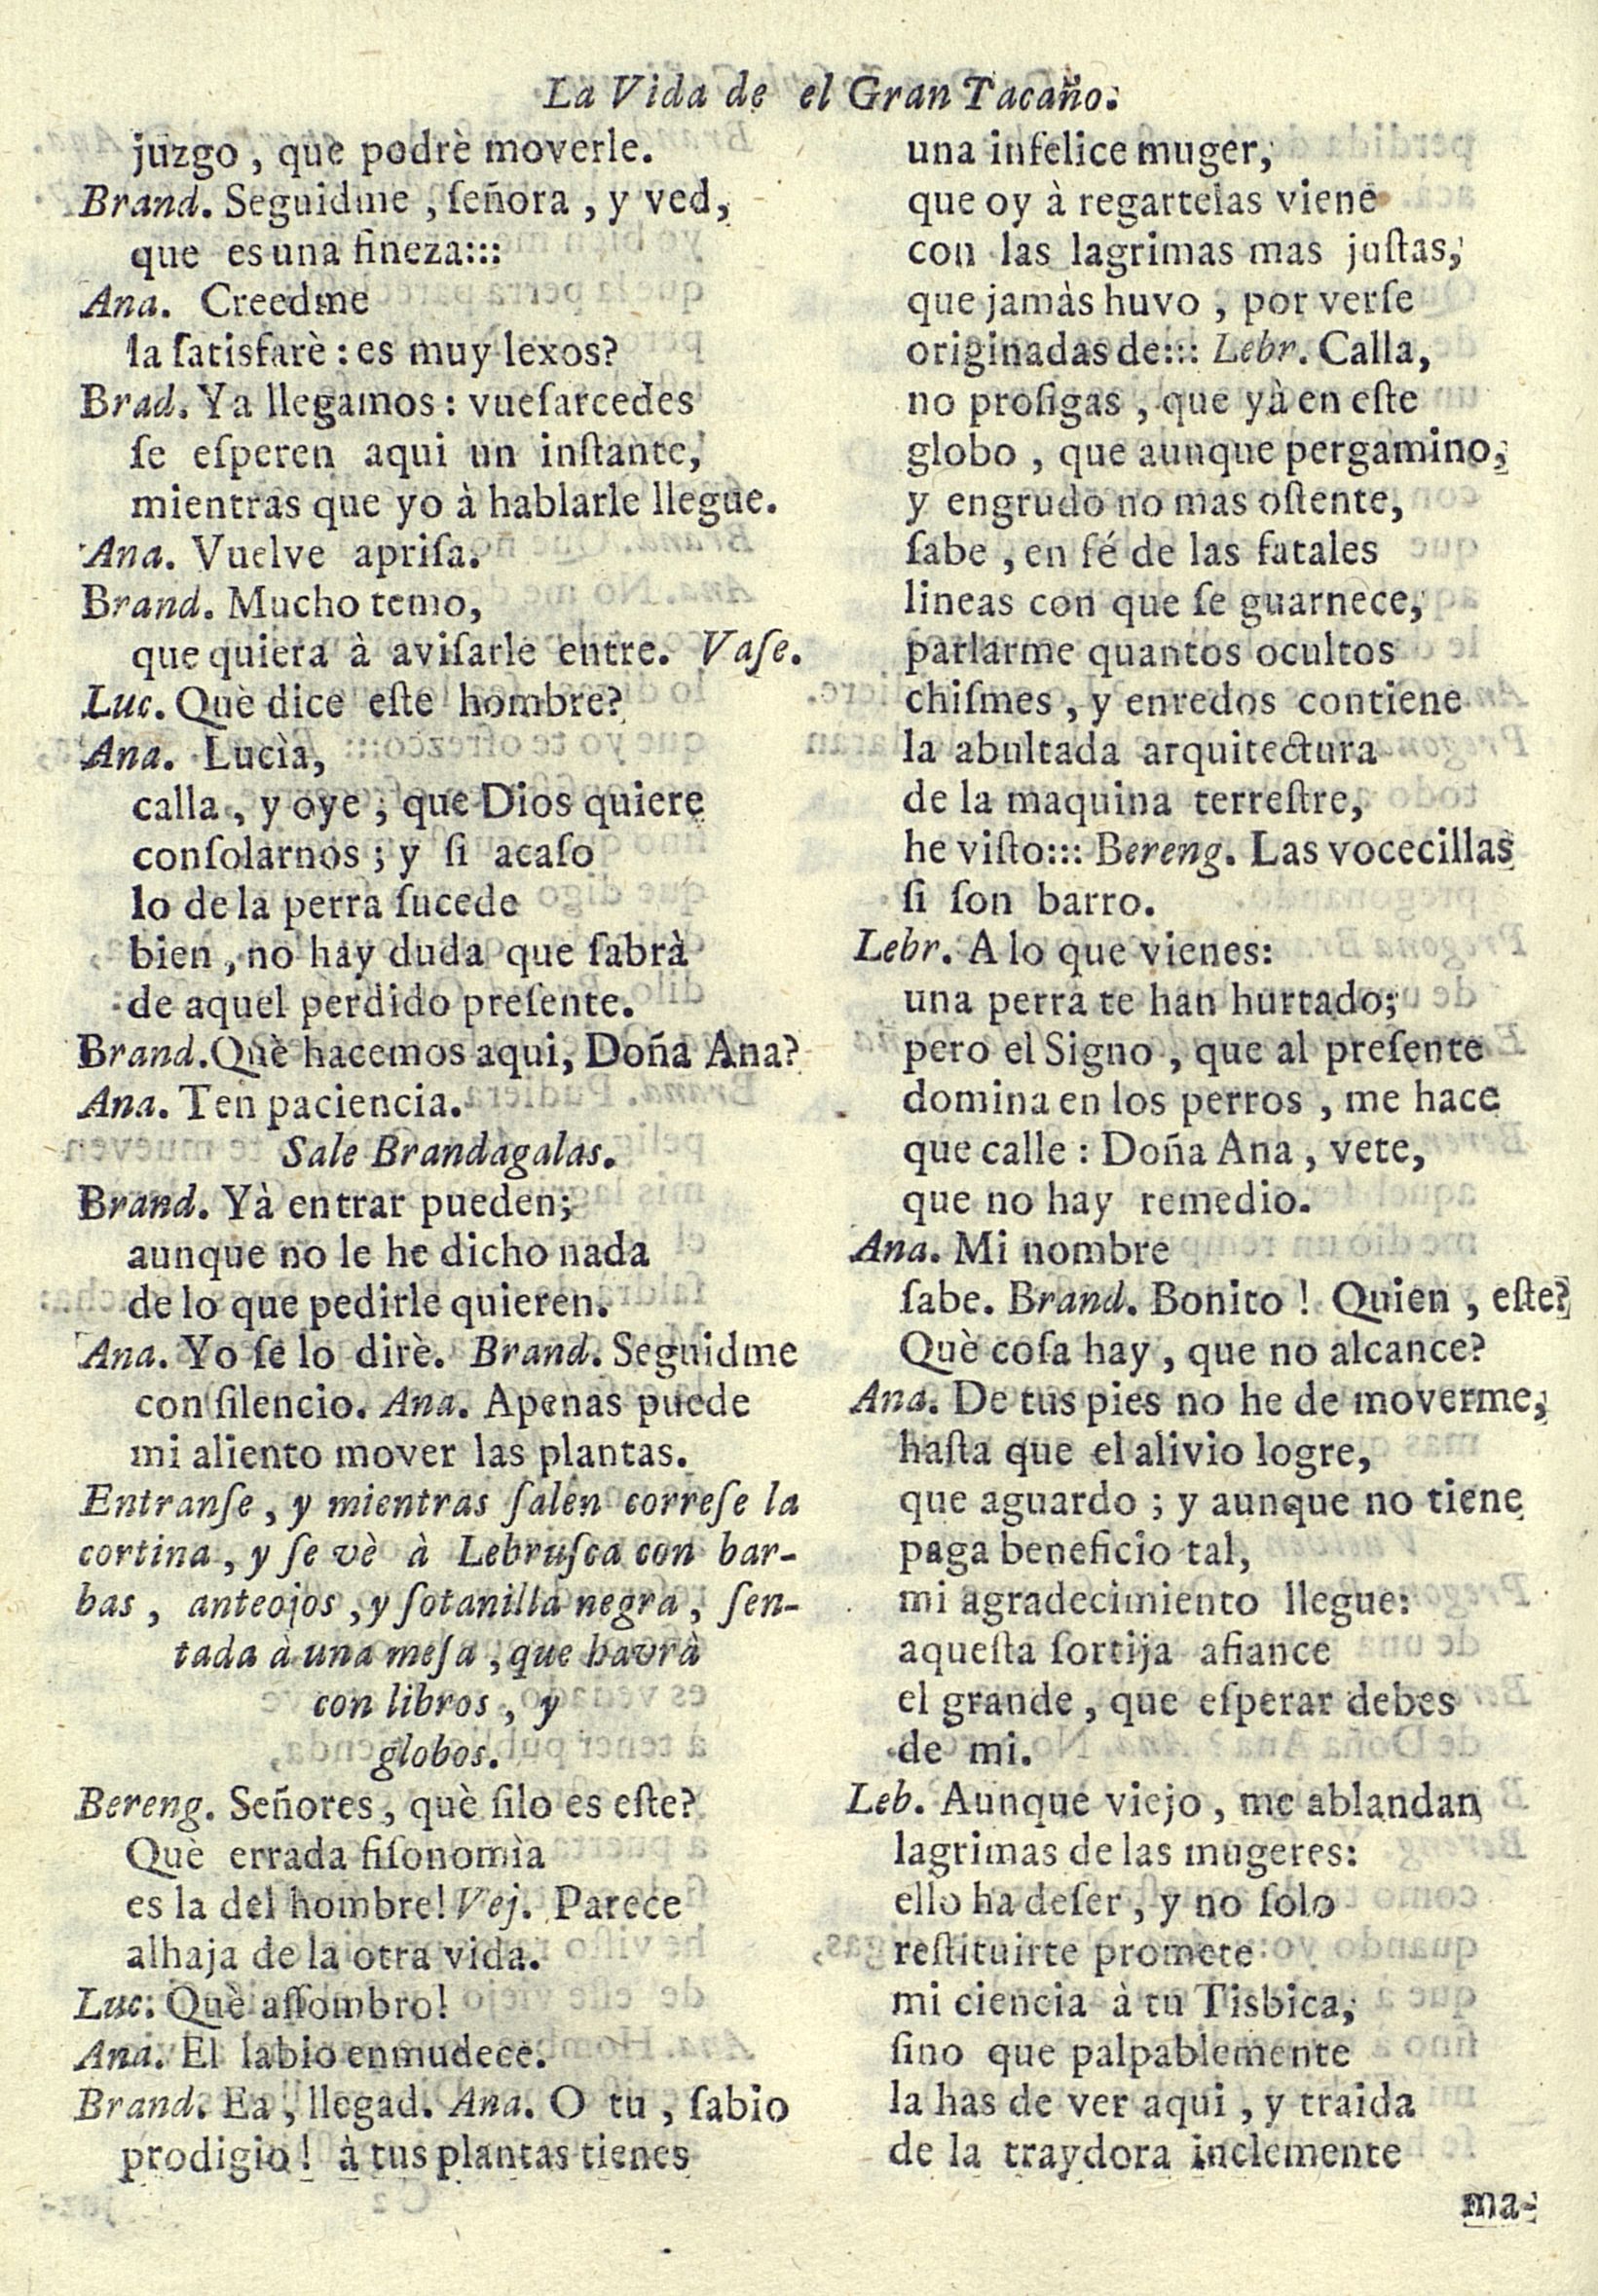 La Vida de el Gran Tacaño.
juzgo, que podrè moverle.
Brand. Seguidme, ſeñora, y ved,
que es una fineza:::
Ana. Creedme
la ſatisfarè: es muy lexos?
Brad. Ya llegamos: vueſarcedes
ſe eſperen aqui un inſtante,
mientras que yo à hablarle llegue.
Ana. Vuelve apriſa.
Brand. Mucho temo,
que quiera à aviſarle entre. Vaſe.
Luc. Què dice eſte hombre?
Ana. Lucìa,
calla, y oye; que Dios quiere
conſolarnos; y ſi acaſo
lo de la perra ſucede
bien, no hay duda que ſabrà
de aquel perdido preſente.
Brand. Què hacemos aqui, Doña Ana?
Ana. Ten paciencia.
Sale Brandagalas.
Brand. Yà entrar pueden;
aunque no le he dicho nada
de lo que pedirle quieren.
Ana. Yo ſe lo dirè. Brand. Seguidme
con ſilencio. Ana. Apenas puede
mi aliento mover las plantas.
Entranſe, y mientras ſalen correſe la
cortina, y ſe vè à Lebruſca con bar-
bas, anteojos, y ſotanilla negra, ſen-
tada à una meſa, que havrà
con libros, y
globos.
Bereng. Señores, què ſilo es eſte?
Què errada fiſonomìa
es la del hombre! Vej. Parece
alhaja de la otra vida.
Luc. Què aſſombro!
Ana. El labio enmudece.
Brand. Ea, llegad. Ana. O tu, ſabio
prodigio! à tus plantas tienes
una infelice muger,
que oy à regartelas viene
con las lagrimas mas juſtas,
que jamàs huvo, por verſe
originadas de::: Lebr. Calla,
no proſigas, que yà en eſte
globo, que aunque pergamino,
y engrudo no mas oſtente,
ſabe, en fé de las fatales
lineas con que ſe guarnece,
parlarme quantos ocultos
chiſmes, y enredos contiene
la abultada arquitectura
de la maquina terreſtre,
he viſto::: Bereng. Las vocecillas
ſi ſon barro.
Lebr. A lo que vienes:
una perra te han hurtado;
pero el Signo, que al preſente
domina en los perros, me hace
que calle: Doña Ana, vete,
que no hay remedio.
Ana. Mi nombre
ſabe. Brand. Bonito! Quien, eſte?
Què coſa hay, que no alcance?
Ana. De tus pies no he de moverme,
haſta que el alivio logre,
que aguardo; y aunque no tiene
paga beneficio tal,
mi agradecimiento llegue:
aqueſta ſortija afiance
el grande, que eſperar debes
de mi.
Leb. Aunque viejo, me ablandan
lagrimas de las mugeres:
ello ha de ſer, y no ſolo
reſtituirte promete
mi ciencia à tu Tisbica,
ſino que palpablemente
la has de ver aqui, y traida
de la traydora inclemente
ma-